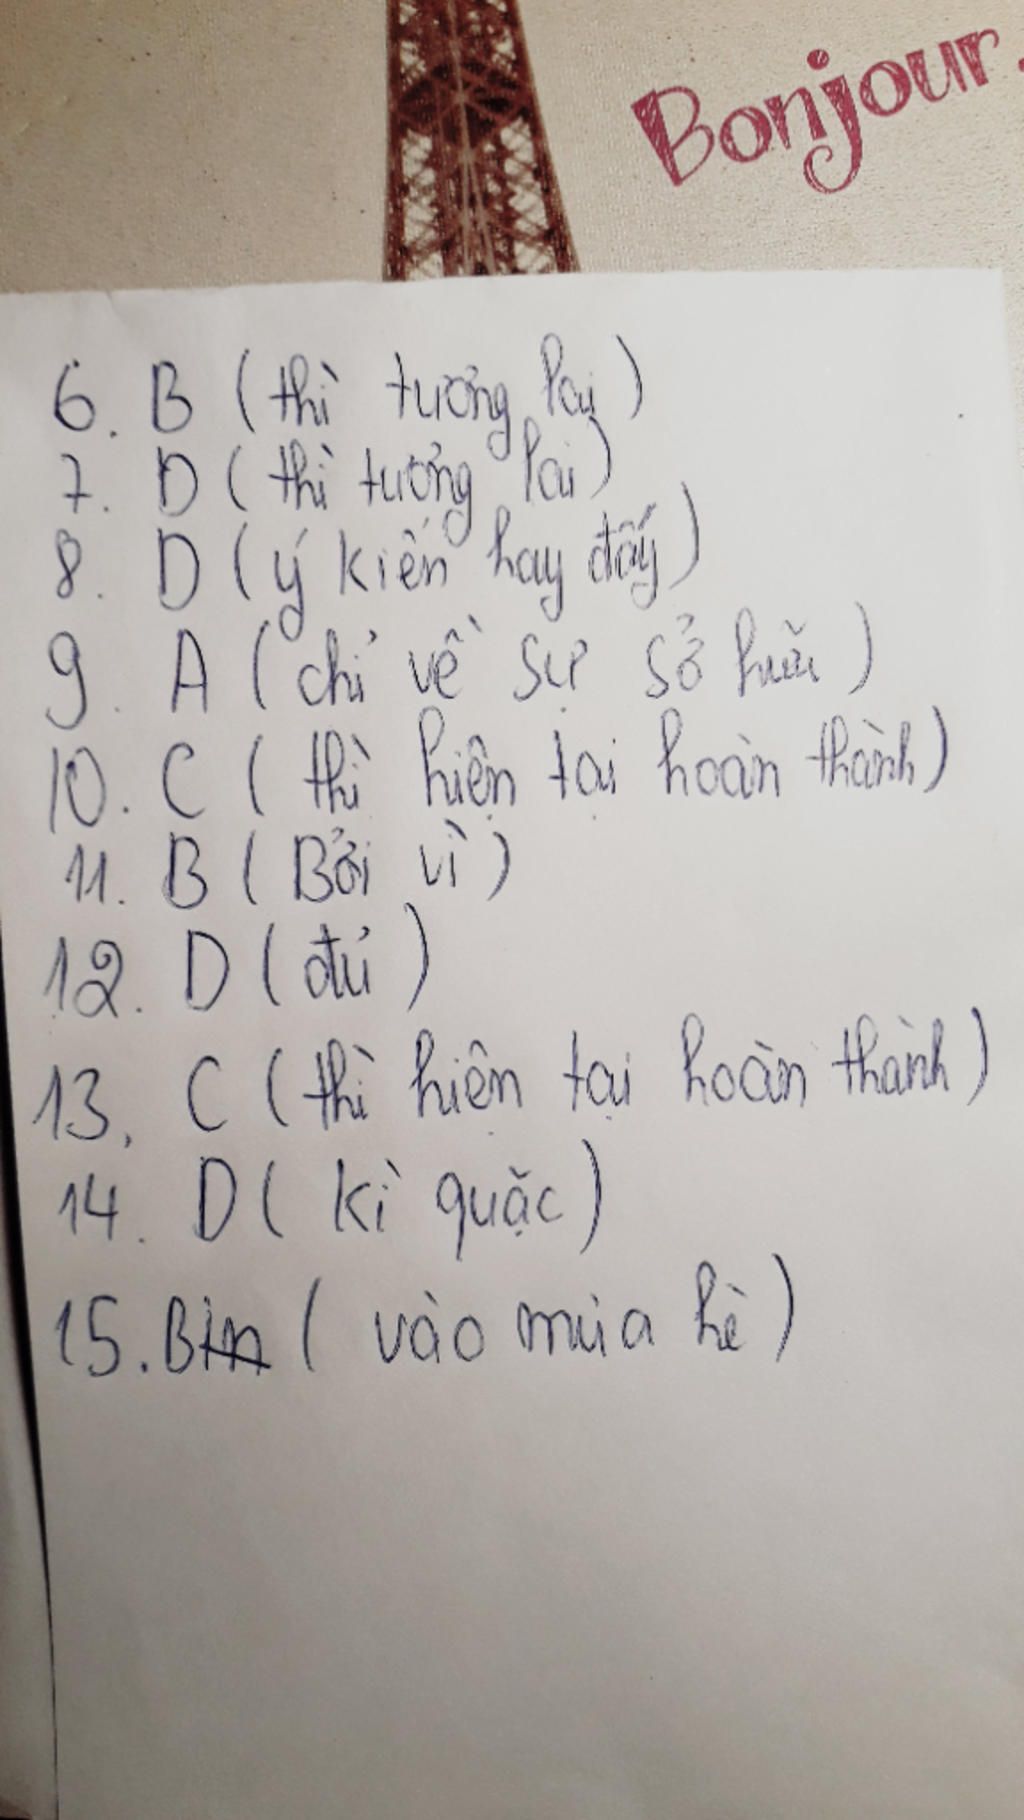 Bonjour.
6. B (thì tương lai)
7. D (thì tương lai)
8. D (ý kiến hay đấy)
9. A (chỉ về sự sở hữu)
10. C (thì hiện tại hoàn thành)
11. B (Bởi vì)
12. D (đủ)
13. C (thì hiện tại hoàn thành)
14. D (kì quặc)
15. B (vào mùa hè)